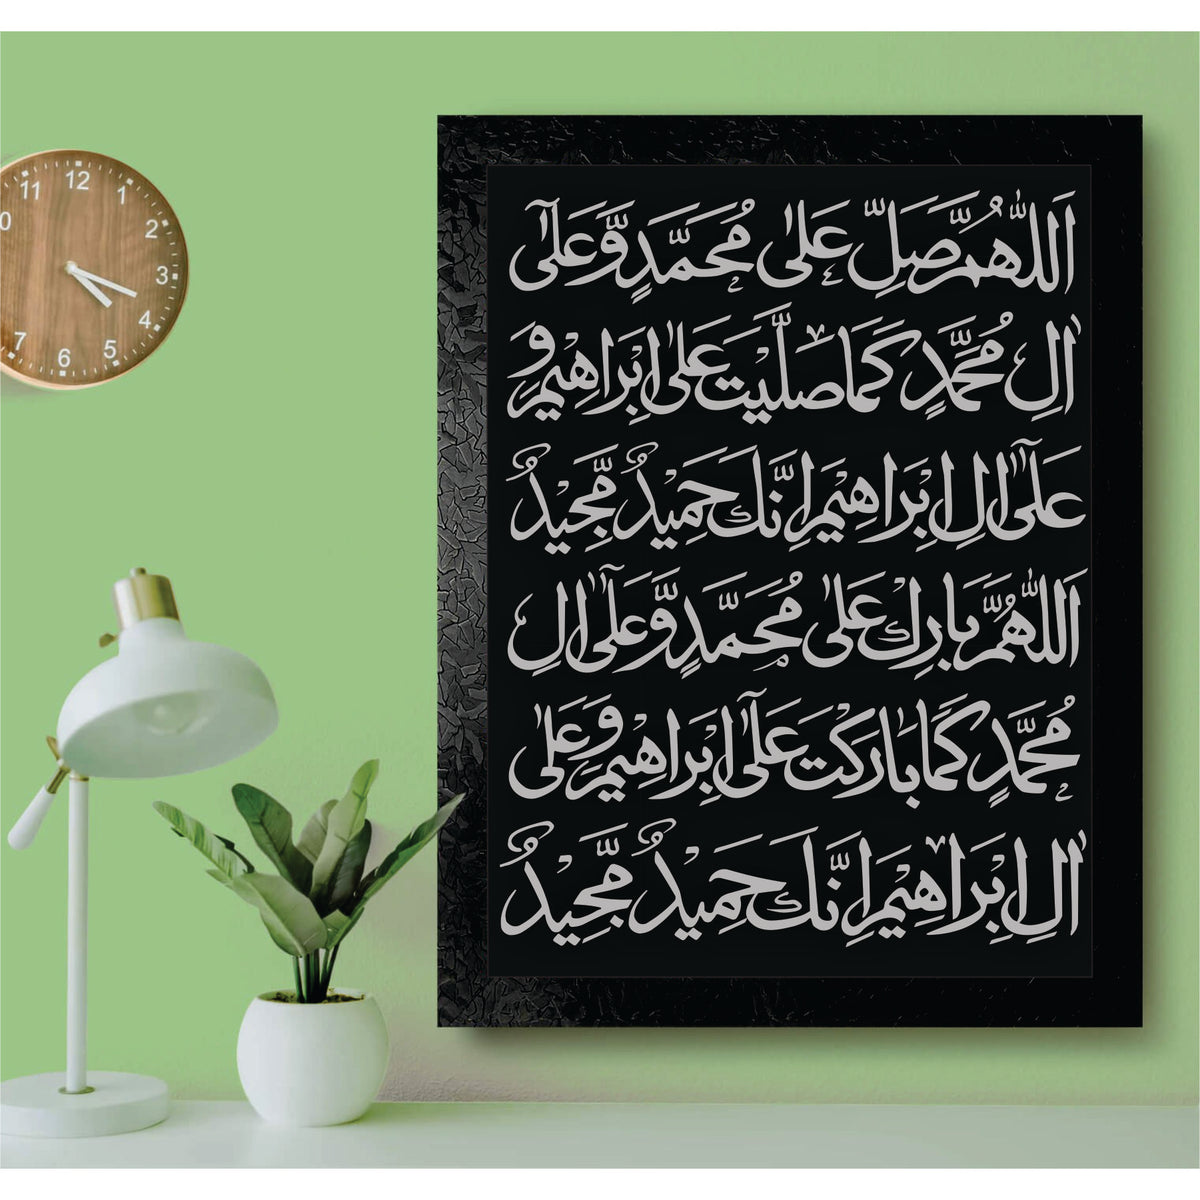 11 12 1
0 2
3
4
7 6 5
اَللّٰهُمَّ صَلِّ عَلٰى مُحَمَّدٍ وَّعَلٰٓى
اٰلِ مُحَمَّدٍ كَمَا صَلَّيْتَ عَلٰى اِبْرَاهِيْمَ وَ
عَلٰٓى اٰلِ اِبْرَاهِيْمَ اِنَّكَ حَمِيْدٌ مَّجِيْدٌ
اَللّٰهُمَّ بَارِكْ عَلٰى مُحَمَّدٍ وَّعَلٰٓى اٰلِ
مُحَمَّدٍ كَمَا بَارَكْتَ عَلٰٓى اِبْرَاهِيْمَ وَعَلٰى
اٰلِ اِبْرَاهِيْمَ اِنَّكَ حَمِيْدٌ مَّجِيْدٌ